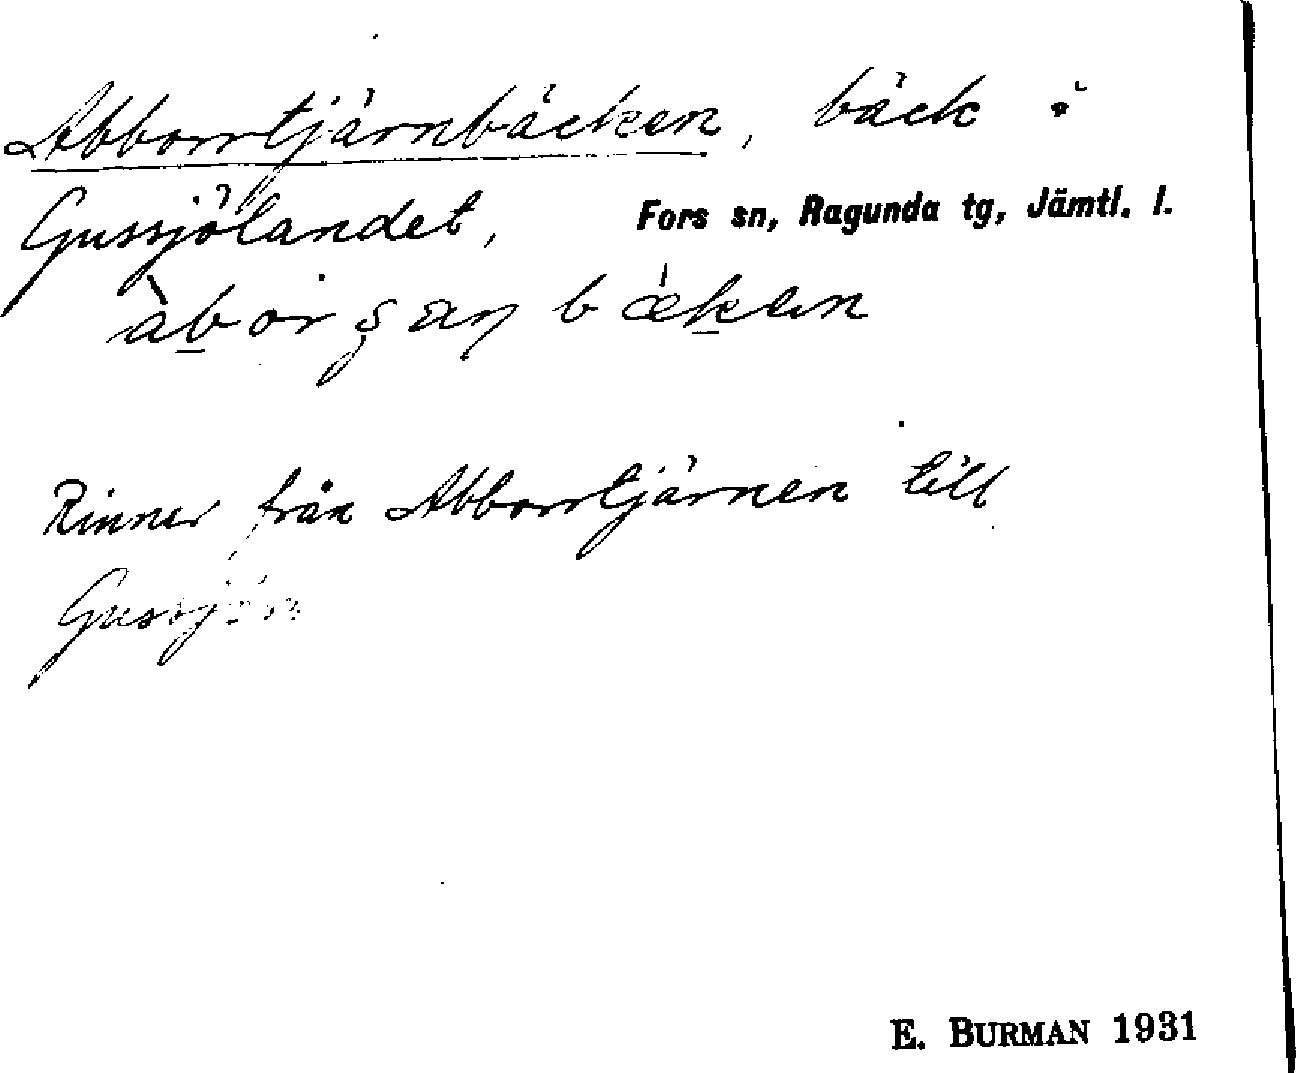 Abborrtjärnbäcken, bäck i
Gussjölandet, Fors sn, Ragunda tg, Jämtl. l.
Rinner från Abborrtjärnen till
Gussjön
E. BURMAN 1931